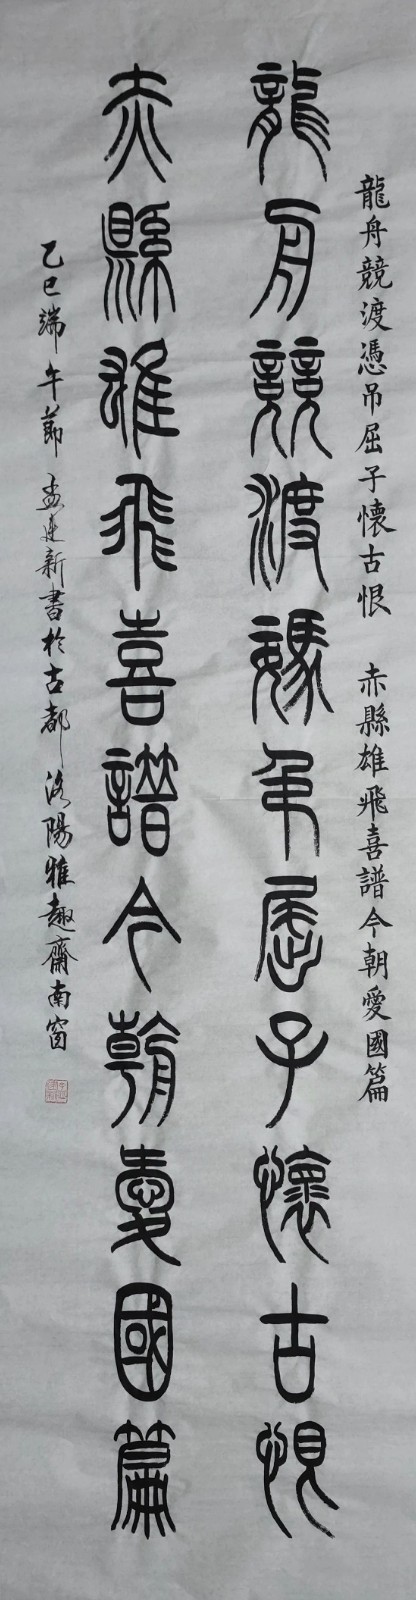 龍舟競渡憑吊屈子懷古恨 赤縣雄飛喜譜今朝愛國篇
龍舟競渡憑吊屈子懷古恨
赤縣雄飛喜譜今朝愛國篇
乙巳端午節 孟建新書於古都洛陽雅趣齋南窗